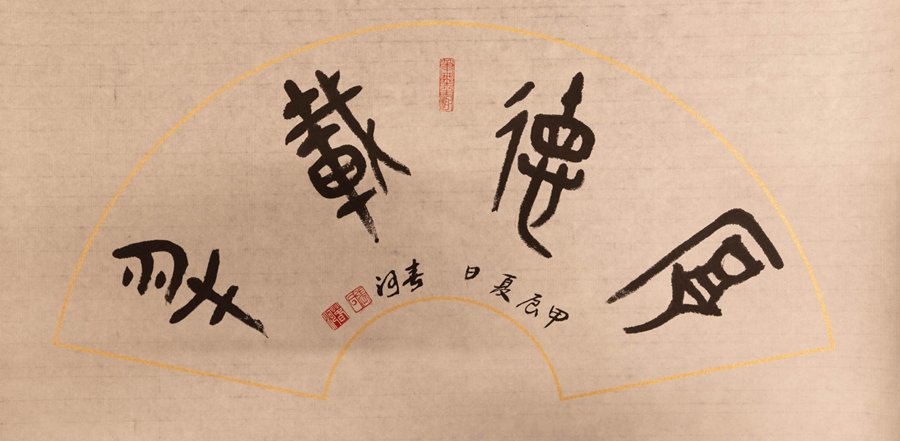 厚德載物
甲辰夏日
春河